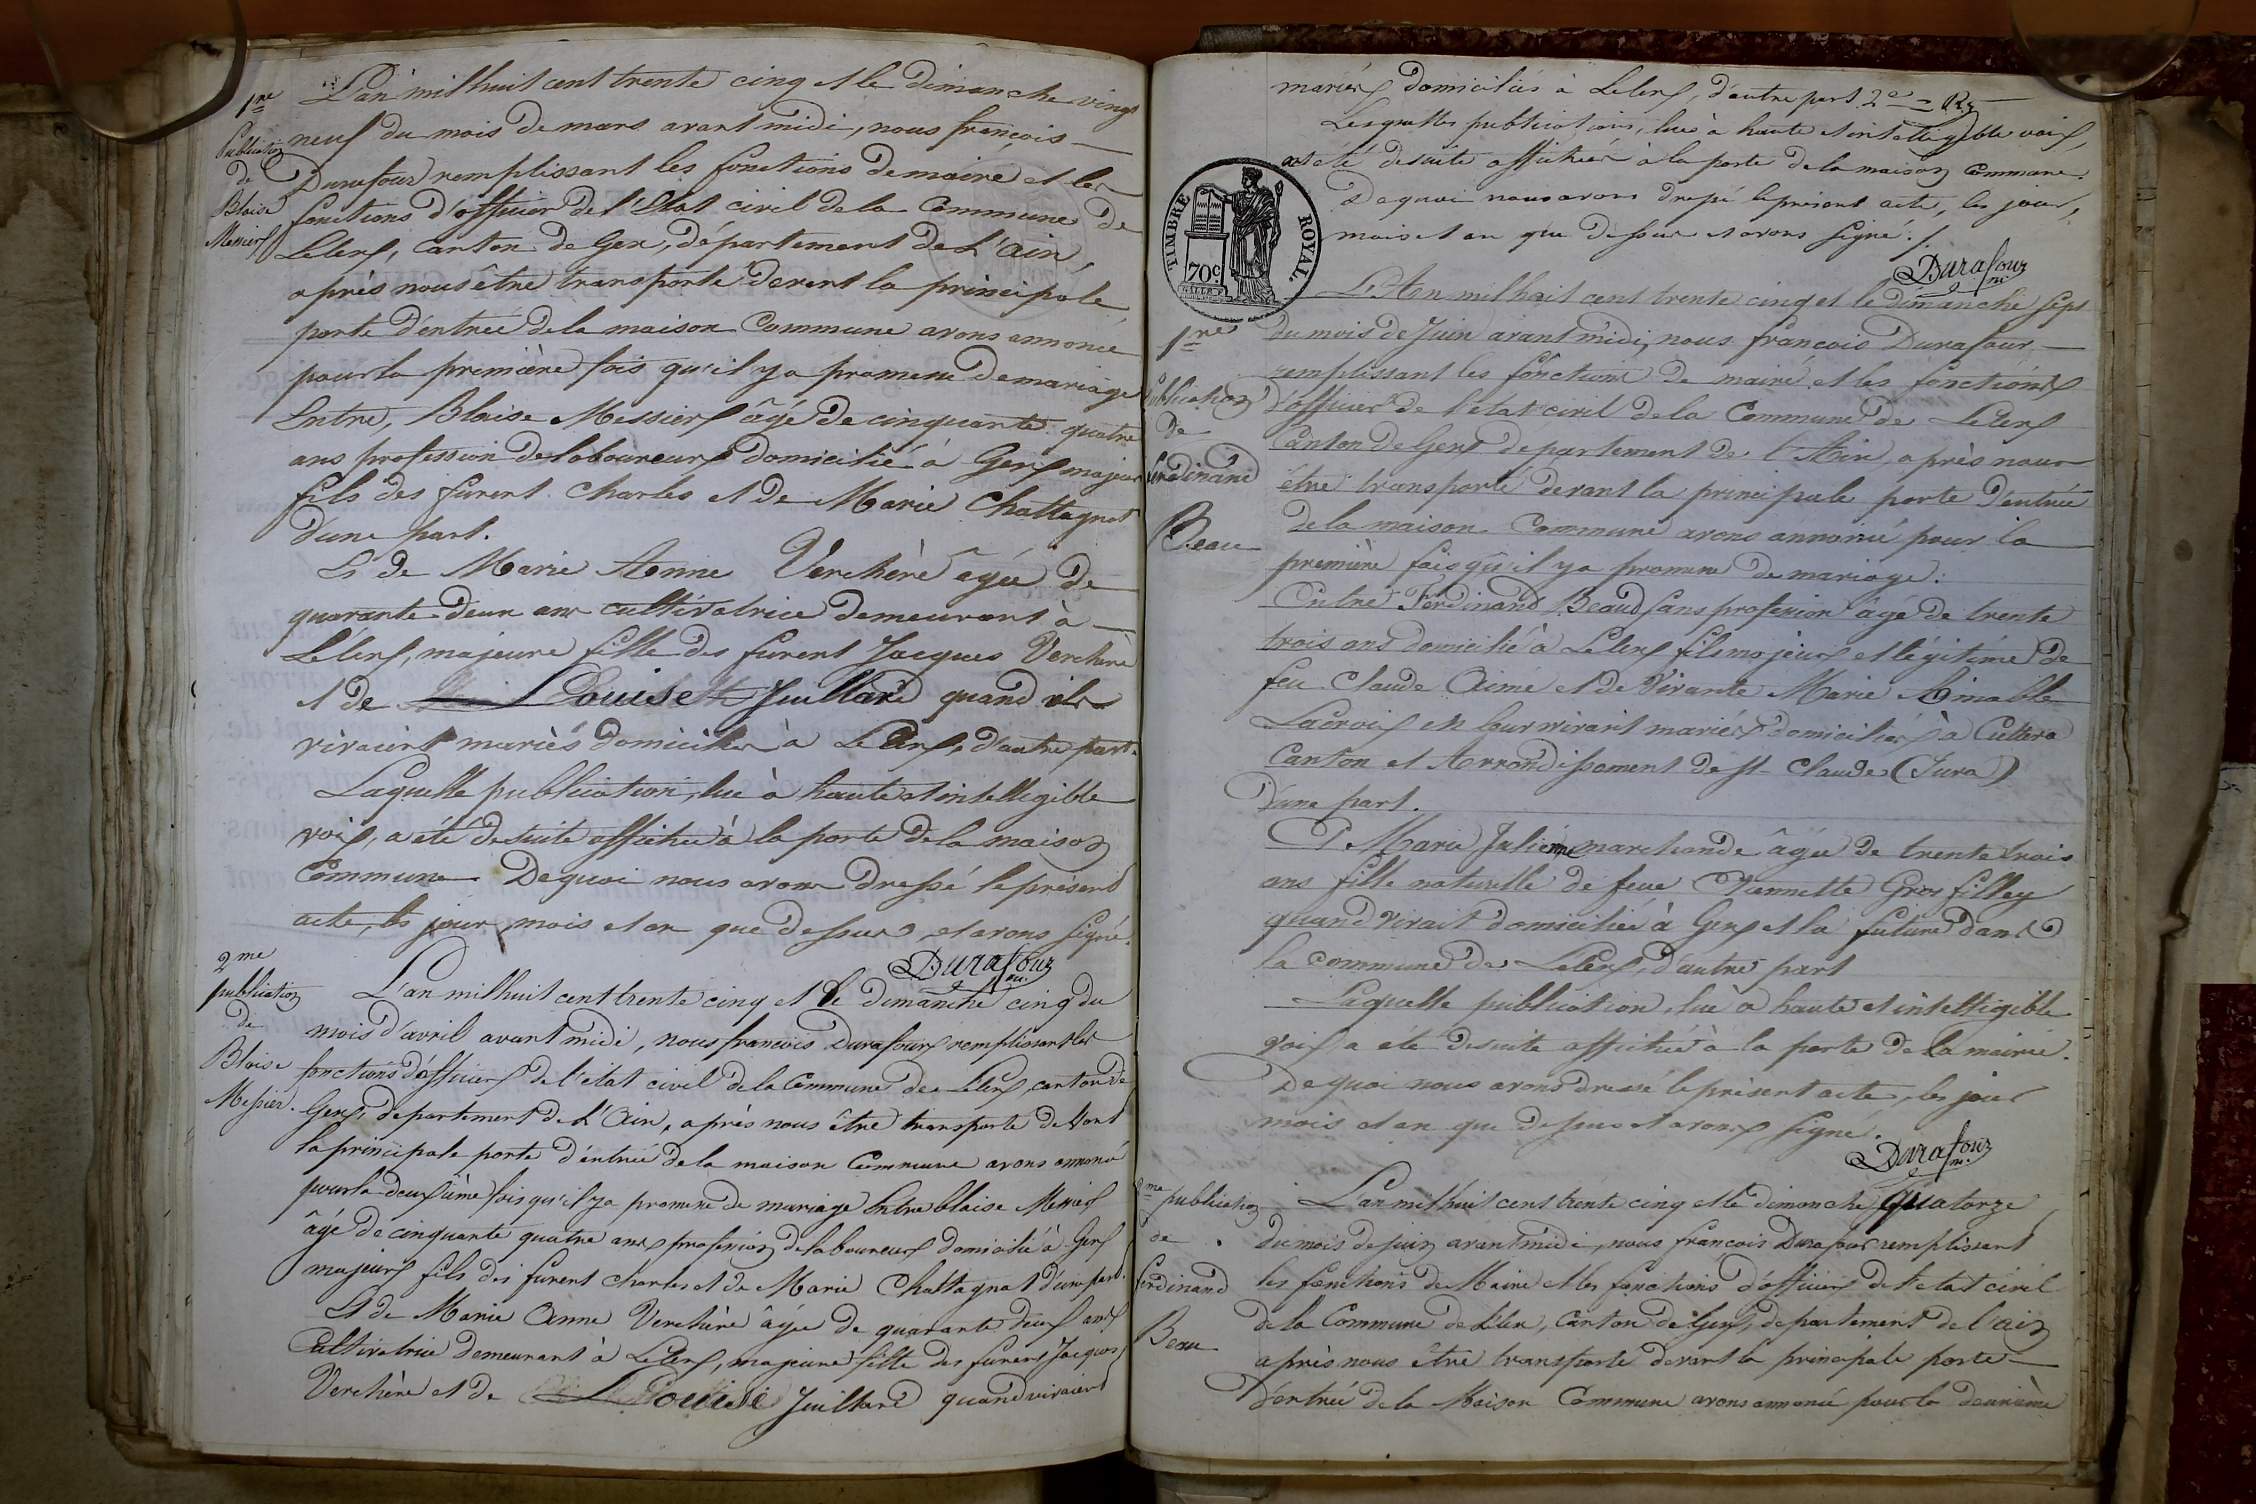 1re
Publication
de
Blaise
Messier
L'an mil huit cent trente cinq et le Dimanche vingt
neuf du mois de mars avant midi, nous françois
Durafour remplissant les fonctions de maire et les
fonctions d'officier de l'Etat civil de la Commune de
Lélex, canton de Gex, département de L'ain,
après nous être transporté devant la principale
porte d'entrée de la maison Commune avons annoncé
pour la première fois qu'il y a promesse de mariage
Entre, Blaise Messier âgé de cinquante quatre
ans profession de laboureur domicilié à Gex majeur
fils des furent Charles et de Marie Chattagnat
d'une part.
Et de Marie Anne Verchère âgée de
quarante deux ans cultivatrice demeurant à
Lélex, majeure fille des furent Jacques Verchère
et de Louise Juillard quand ils
vivaient mariés domiciliés à Lélex, d'autre part.
Laquelle publication, lue à haute et intelligible
voix, a été de suite affichée à la porte de la maison
Commune. De quoi nous avons dressé le présent
acte, les jour, mois et an que dessus, et avons signé.
Durafour
2me
publication
de
Blaise
Messier.
L'an mil huit cent trente cinq et le dimanche cinq du
mois d'avril avant midi, nous francois Durafour remplissant les
fonctions d'officier de l'état civil de la Commune de Lélex, canton de
Gex, département de L'Ain, après nous être transporté devant
la principale porte d'entrée de la maison Commune avons annoncé
pour la deuxième fois qu'il y a promesse de mariage Entre blaise Messier
âgé de cinquante quatre ans profession de laboureur domicilié à Gex
majeur fils des furent Charles et de Marie Chattagnat d'une part.
Et de Marie Anne Verchère âgée de quarante deux ans
Cultivatrice demeurant à Lélex, majeure fille des furent Jacques
Verchère et de Louise Juillard quand vivaient
mariés domiciliés à Lélex, d'autre part. 2e
Lesquelles publications, lues à haute et intelligible voix,
ont été de suite affichées à la porte de la maison Commune.
De quoi nous avons dressé le présent acte, les jour,
mois et an que dessus et avons signé.
Durafour
TIMBRE ROYAL.
70c
1re
Publication
de
ferdinand
Beau
L'An mil huit cent trente cinq et le dimanche sept
du mois de Juin avant midi, nous francois Durafour
remplissant les fonctions de maire et les fonctions
d'officier de l'état civil de la Commune de Lélex
Canton de Gex département de l'Ain, après nous
être transporté devant la principale porte d'entrée
de la maison Commune avons annoncé pour la
première fois qu'il y a promesse de mariage:
Entre Ferdinand Beaud sans profession âgé de trente
trois ans domicilié à Lélex fils majeur et légitime de
feu Claude Aimé et de Vivante Marie Aimable
Lacroix en leur vivant mariés domiciliés à Cuttura
Canton et Arrondissement de St Claude (Jura)
d'une part.
Et Marie Julienne marchande âgée de trente trois
ans fille naturelle de feue Pernette Gros filley
quand vivait domiciliée à Gex et la future dans
la commune de Lélex, d'autre part
Laquelle publication, lue à haute et intelligible
voix a été de suite affichée à la porte de la mairie.
De quoi nous avons dressé le présent acte, les jour
mois et an que dessus et avons signé.
Durafour
2me publication
de
ferdinand
Beau
L'an mil huit cent trente cinq et le dimanche quatorze
du mois de juin avant midi, nous francois Durafour remplissant
les fonctions de Maire et les fonctions d'officier de l'etat civil
de la Commune de Lélex, Canton de Gex, département de l'ain
après nous être transporté devant la principale porte
d'entrée de la Maison Commune avons annoncé pour la deuxième